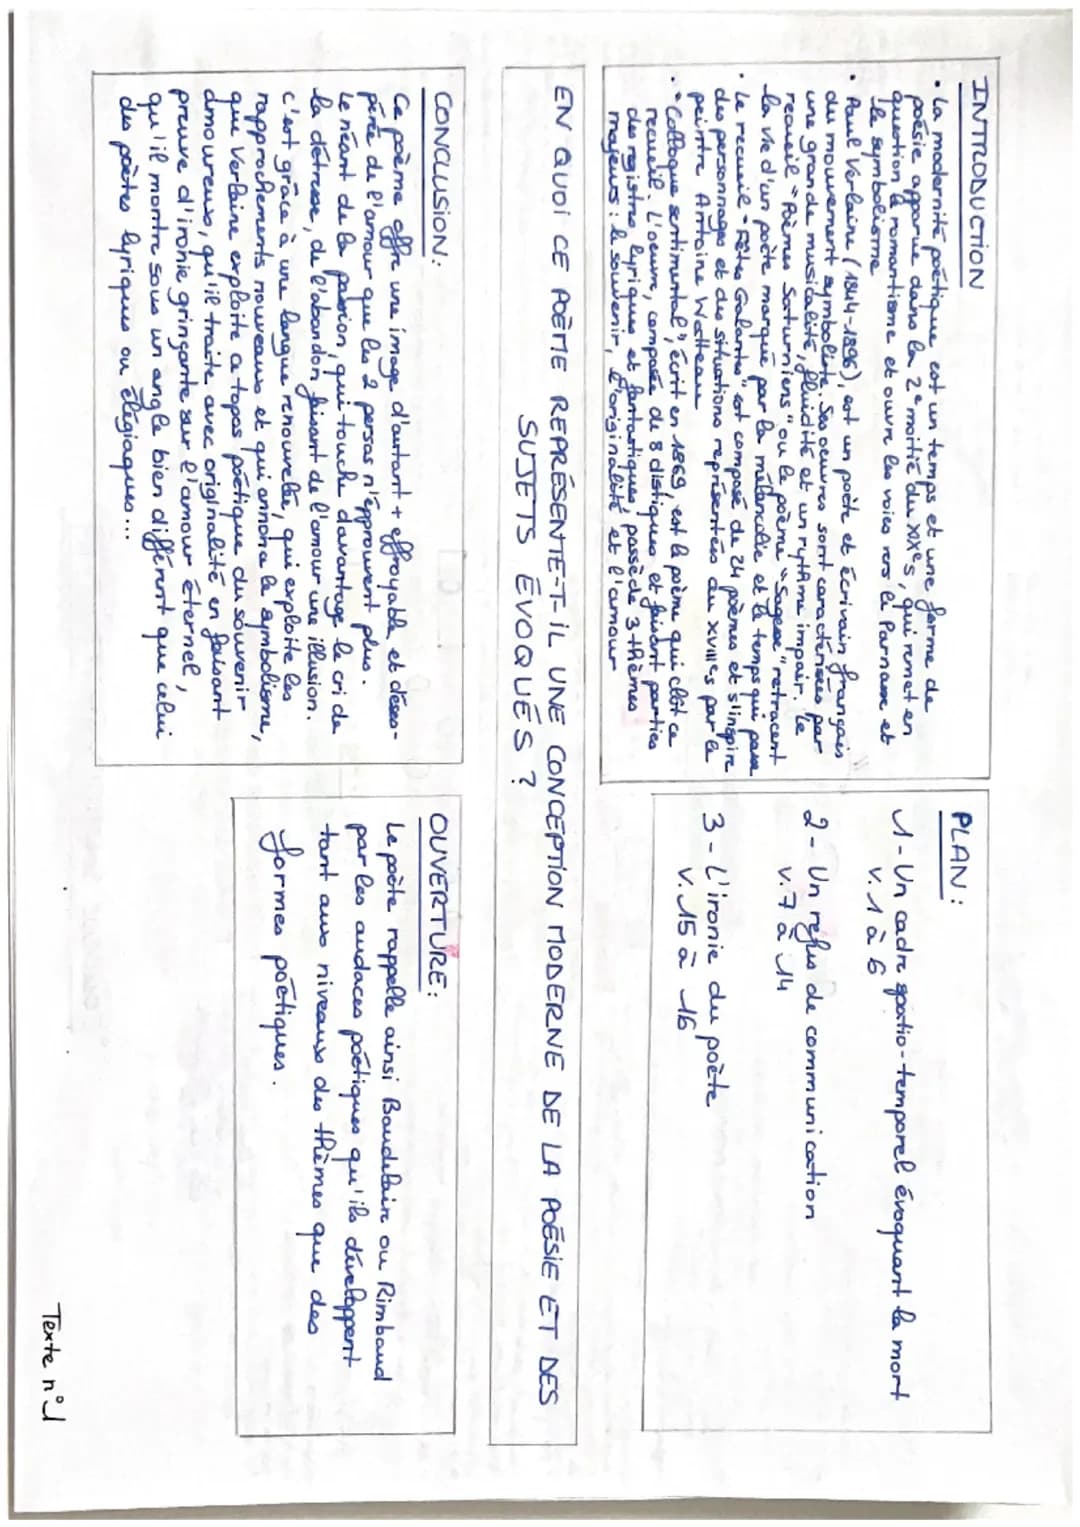 INTRODUCTION
• La modernité poétique est un temps et une forme de
poésie apparue dans la 2e moitié du XIXe s, qui remet en
question le romantisme et ouvre les voies vers le Parnasse et
le symbolisme
• Paul Verlaine (1844-1896) est un poète et écrivain français
du mouvement symboliste. Ses oeuvres sont caractérisées par
une grande musicalité, fluidité et un rythme impair. Le
recueil "Poèmes Saturniens" ou le poème "Sagesse" retracent
la vie d'un poète marqué par la mélancolie et le temps qui passe
• Le recueil "Fêtes Galantes" est composé de 24 poèmes et s'inspire
des personnages et des situations représentées du XVIIIe s par le
peintre Antoine Watteau
• "Colloque sentimental", écrit en 1869, est le poème qui clôt ce
recueil. L'oeuvre, composée de 8 distiques et faisant parties
des registres lyriques et fantastiques, possède 3 thèmes
majeurs : le souvenir, l'originalité et l'amour
PLAN :
1 - Un cadre spatio-temporel évoquant la mort
v. 1 à 6
2 - Un refus de communication
v. 7 à 14
3 - L'ironie du poète
v. 15 à 16
EN QUOI CE POÈME REPRÉSENTE-T-IL UNE CONCEPTION MODERNE DE LA POÉSIE ET DES
SUJETS ÉVOQUÉS ?
CONCLUSION :
Ce poème offre une image d'autant + effroyable et déses-
pérée de l'amour que les 2 persos n'éprouvent plus.
Le néant de la passion, qui touche davantage le cri de
la détresse, de l'abandon faisant de l'amour une illusion.
C'est grâce à une langue renouvelée, qui exploite les
rapprochements nouveaux et qui annonce le symbolisme,
que Verlaine exploite ce topos poétique du souvenir
amoureux, qu'il traite avec originalité en faisant
preuve d'ironie grinçante sur l'amour éternel,
qu'il montre sous un angle bien différent que celui
des poètes lyriques ou élégiaques...
OUVERTURE :
Le poète rappelle ainsi Baudelaire ou Rimbaud
par les audaces poétiques qu'ils développent
tant aux niveaux des thèmes que des
formes poétiques.
Texte n°1